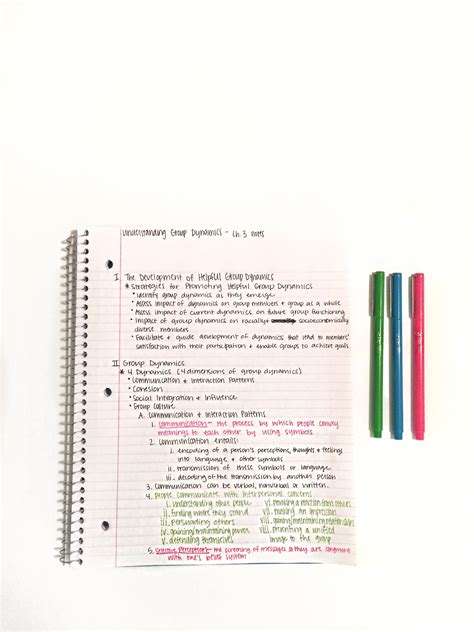 Understanding Group Dynamics - Ch. 3 notes
I. The Development of Helpful Group Dynamics
* Strategies for Promoting Helpful Group Dynamics
• Identify group dynamics as they emerge
• Assess impact of dynamics on group members + group as a whole
• Assess impact of current dynamics on future group functioning
• Impact of group dynamics on racially + socioeconomically
diverse members
• Facilitate + guide development of dynamics that lead to members'
satisfaction with their participation + enable groups to achieve goals
II. Group Dynamics
* 4 Dynamics (4 dimensions of group dynamics)
• Communication + Interaction Patterns
• Cohesion
• Social Integration + Influence
• Group Culture
A. Communication + Interaction Patterns
1. Communication - the process by which people convey
meanings to each other by using symbols.
2. Communication entails:
i. encoding of a person's perceptions, thoughts + feelings
into language + other symbols
ii. transmission of these symbols or language
iii. decoding of the transmission by another person
3. Communication can be verbal, nonverbal or written.
4. people communicate with interpersonal concerns
i. understanding other people
ii. finding where they stand
iii. persuading others
iv. gaining/maintaining power
v. defending themselves
vi. provoking a reaction from others
vii. making an impression
viii. gaining/maintaining relationships
viii. presenting a unified
image to the group
5. Selective perception - the screening of messages so they are congruent
with one's belief system